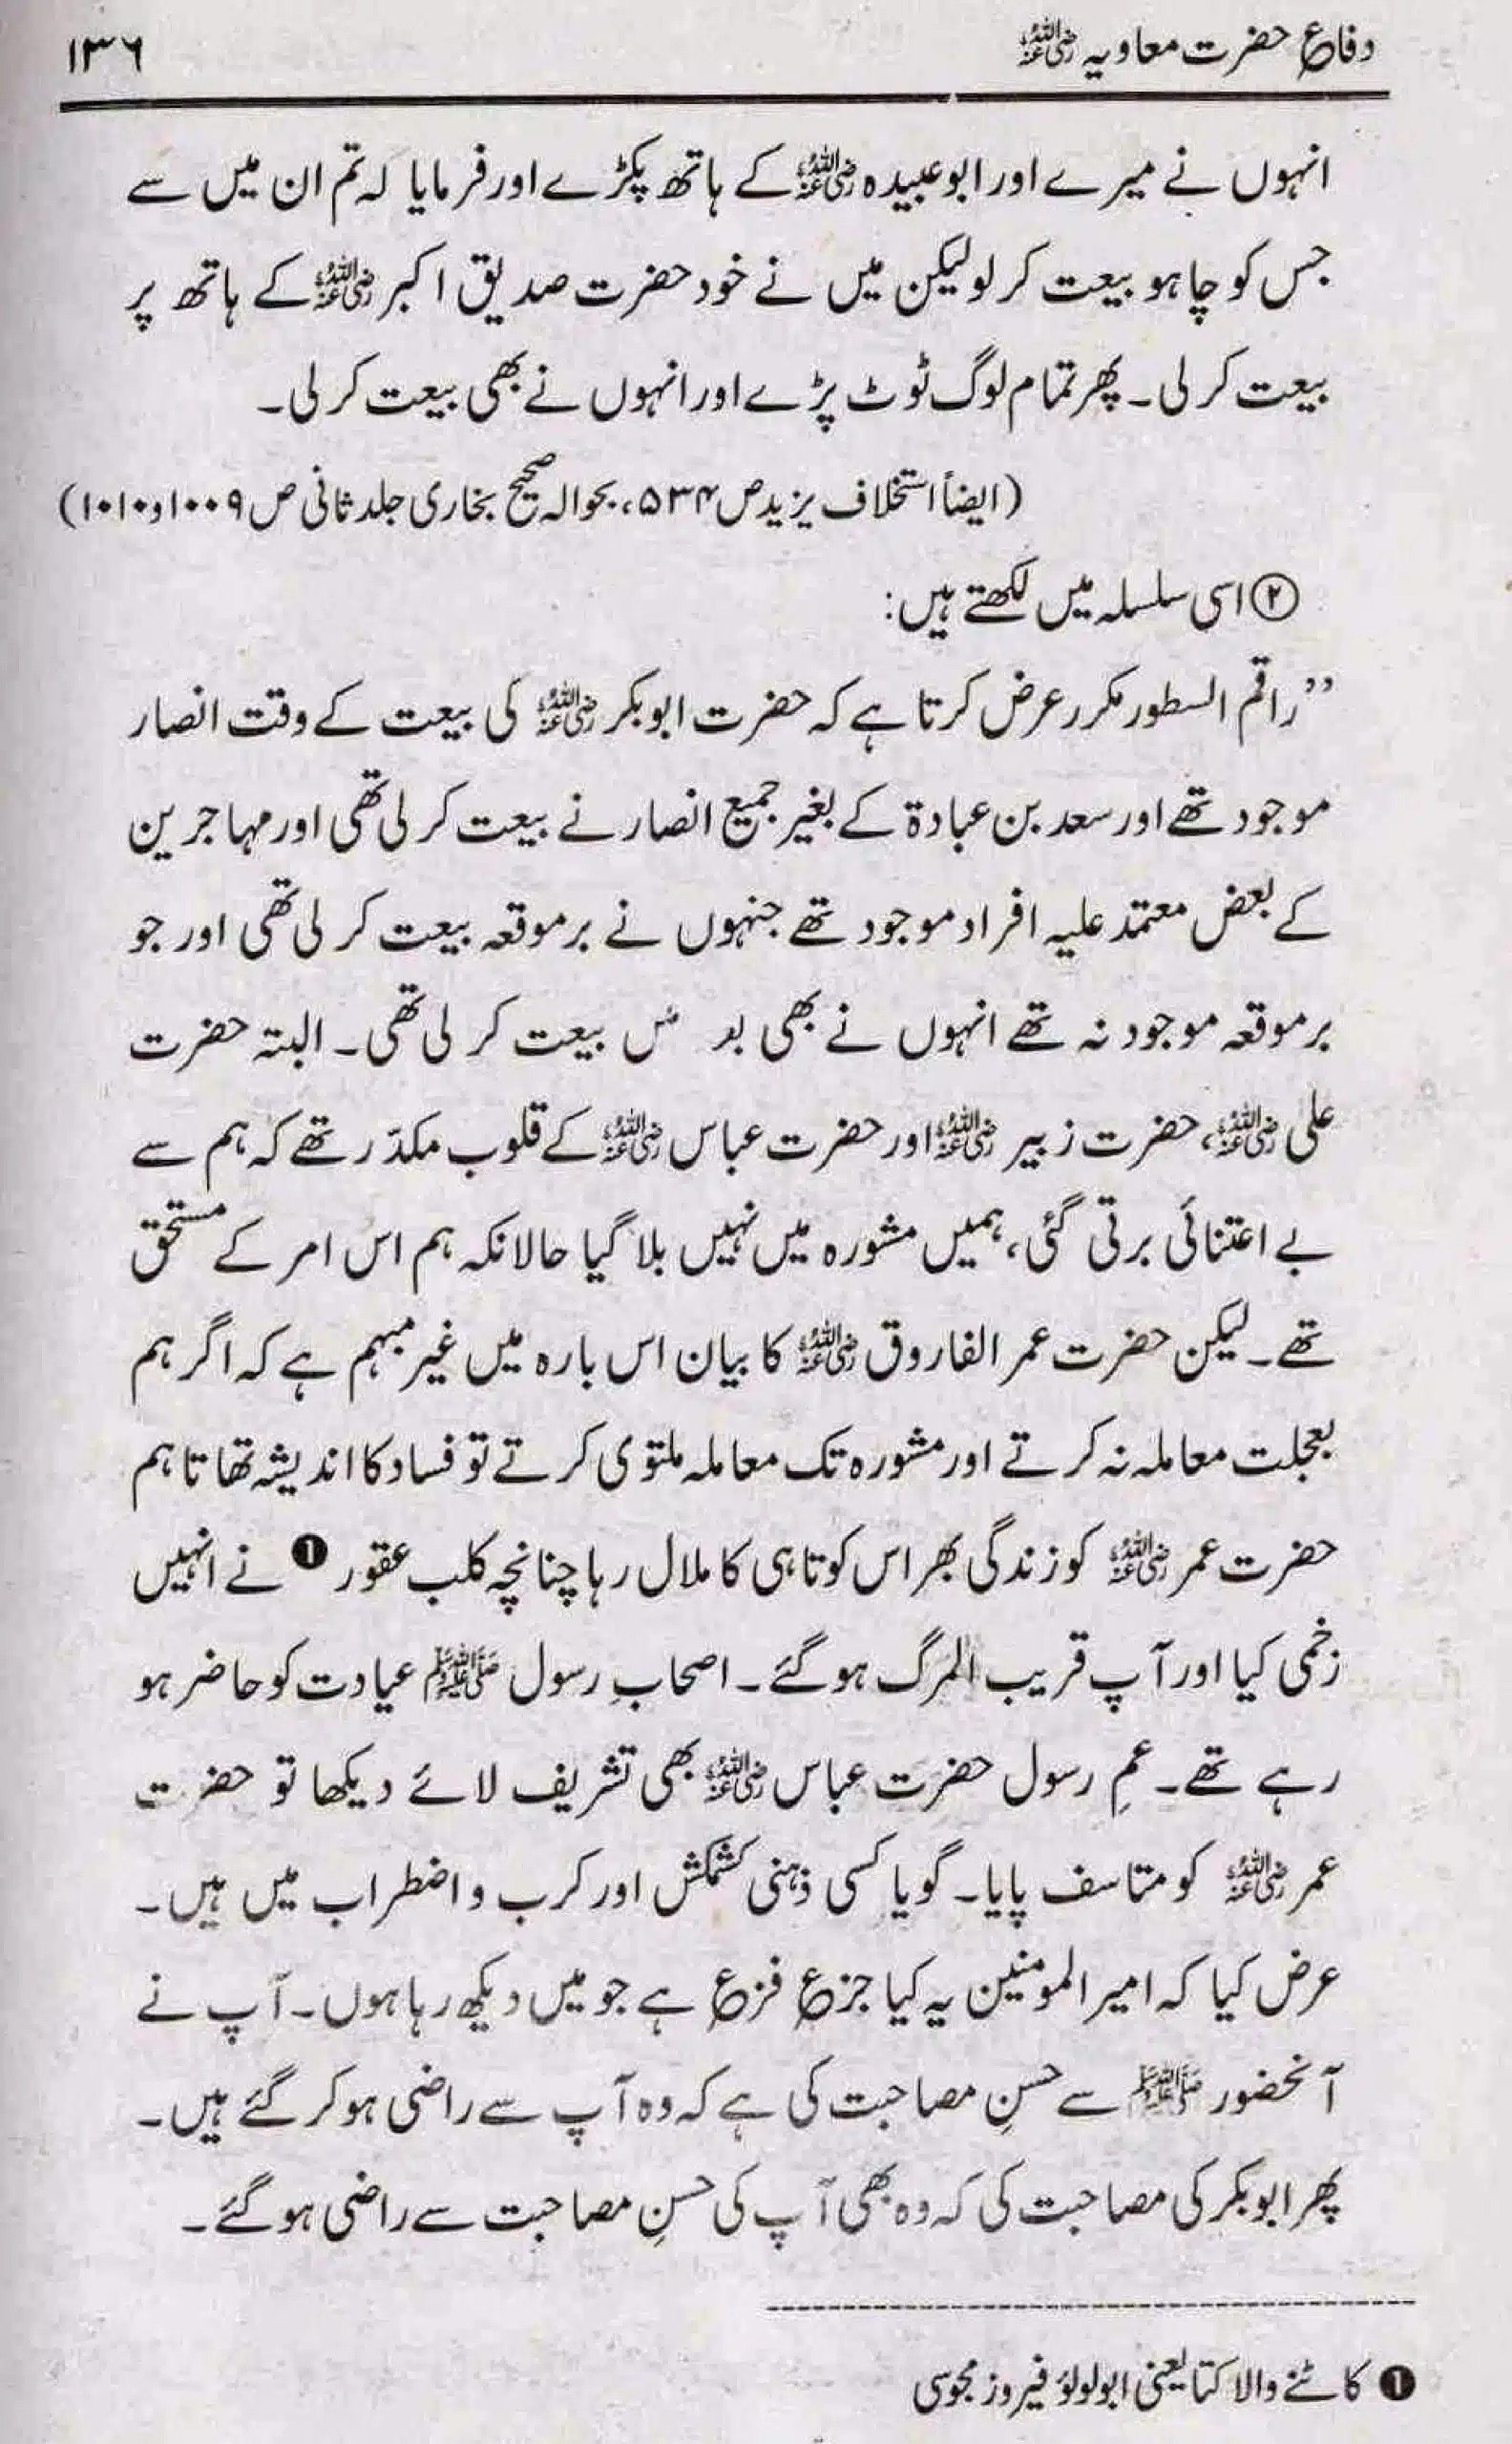 دفاع حضرت معاویہ رضی اللہ عنہ ۱۳۶
انہوں نے میرے اور ابوعبیدہ رضی اللہ عنہ کے ہاتھ پکڑے اور فرمایا کہ تم ان میں سے
جس کو چاہو بیعت کر لو لیکن میں نے خود حضرت صدیق اکبر رضی اللہ عنہ کے ہاتھ پر
بیعت کر لی۔ پھر تمام لوگ ٹوٹ پڑے اور انہوں نے بھی بیعت کر لی۔
(ایضاً استخلاف یزید ص ۵۳۴، بحوالہ صحیح بخاری جلد ثانی ص ۱۰۰۹ و ۱۰۱۰)
② اسی سلسلہ میں لکھتے ہیں:
”راقم السطور مکرر عرض کرتا ہے کہ حضرت ابوبکر رضی اللہ عنہ کی بیعت کے وقت انصار
موجود تھے اور سعد بن عبادۃ کے بغیر جمیع انصار نے بیعت کر لی تھی اور مہاجرین
کے بعض معتمد علیہ افراد موجود تھے جنہوں نے بر موقعہ بیعت کر لی تھی اور جو
بر موقعہ موجود نہ تھے انہوں نے بھی بیعت کر لی تھی۔ البتہ حضرت
علی رضی اللہ عنہ، حضرت زبیر رضی اللہ عنہ اور حضرت عباس رضی اللہ عنہ کے قلوب مکدّر تھے کہ ہم سے
بے اعتنائی برتی گئی، ہمیں مشورہ میں نہیں بلا گیا حالانکہ ہم اس امر کے مستحق
تھے۔ لیکن حضرت عمر الفاروق رضی اللہ عنہ کا بیان اس بارہ میں غیر مبہم ہے کہ اگر ہم
بعجلت معاملہ نہ کرتے اور مشورہ تک معاملہ ملتوی کرتے تو فساد کا اندیشہ تھا تاہم
حضرت عمر رضی اللہ عنہ کو زندگی بھر اس کوتاہی کا ملال رہا چنانچہ کلب عقور ❶ نے انہیں
زخمی کیا اور آپ قریب المرگ ہو گئے۔ اصحابِ رسول صلی اللہ علیہ وسلم عیادت کو حاضر ہو
رہے تھے۔ عمِ رسول حضرت عباس رضی اللہ عنہ بھی تشریف لائے دیکھا تو حضرت
عمر رضی اللہ عنہ کو متاسف پایا۔ گویا کسی ذہنی کشمکش اور کرب و اضطراب میں ہیں۔
عرض کیا کہ امیر المومنین یہ کیا جزع فزع ہے جو میں دیکھ رہا ہوں۔ آپ نے
آنحضور صلی اللہ علیہ وسلم سے حسنِ مصاحبت کی ہے کہ وہ آپ سے راضی ہو کر گئے ہیں۔
پھر ابوبکر کی مصاحبت کی کہ وہ بھی آپ کی حسنِ مصاحبت سے راضی ہو گئے۔
❶ کاٹنے والا کتا یعنی ابولولؤ فیروز مجوسی